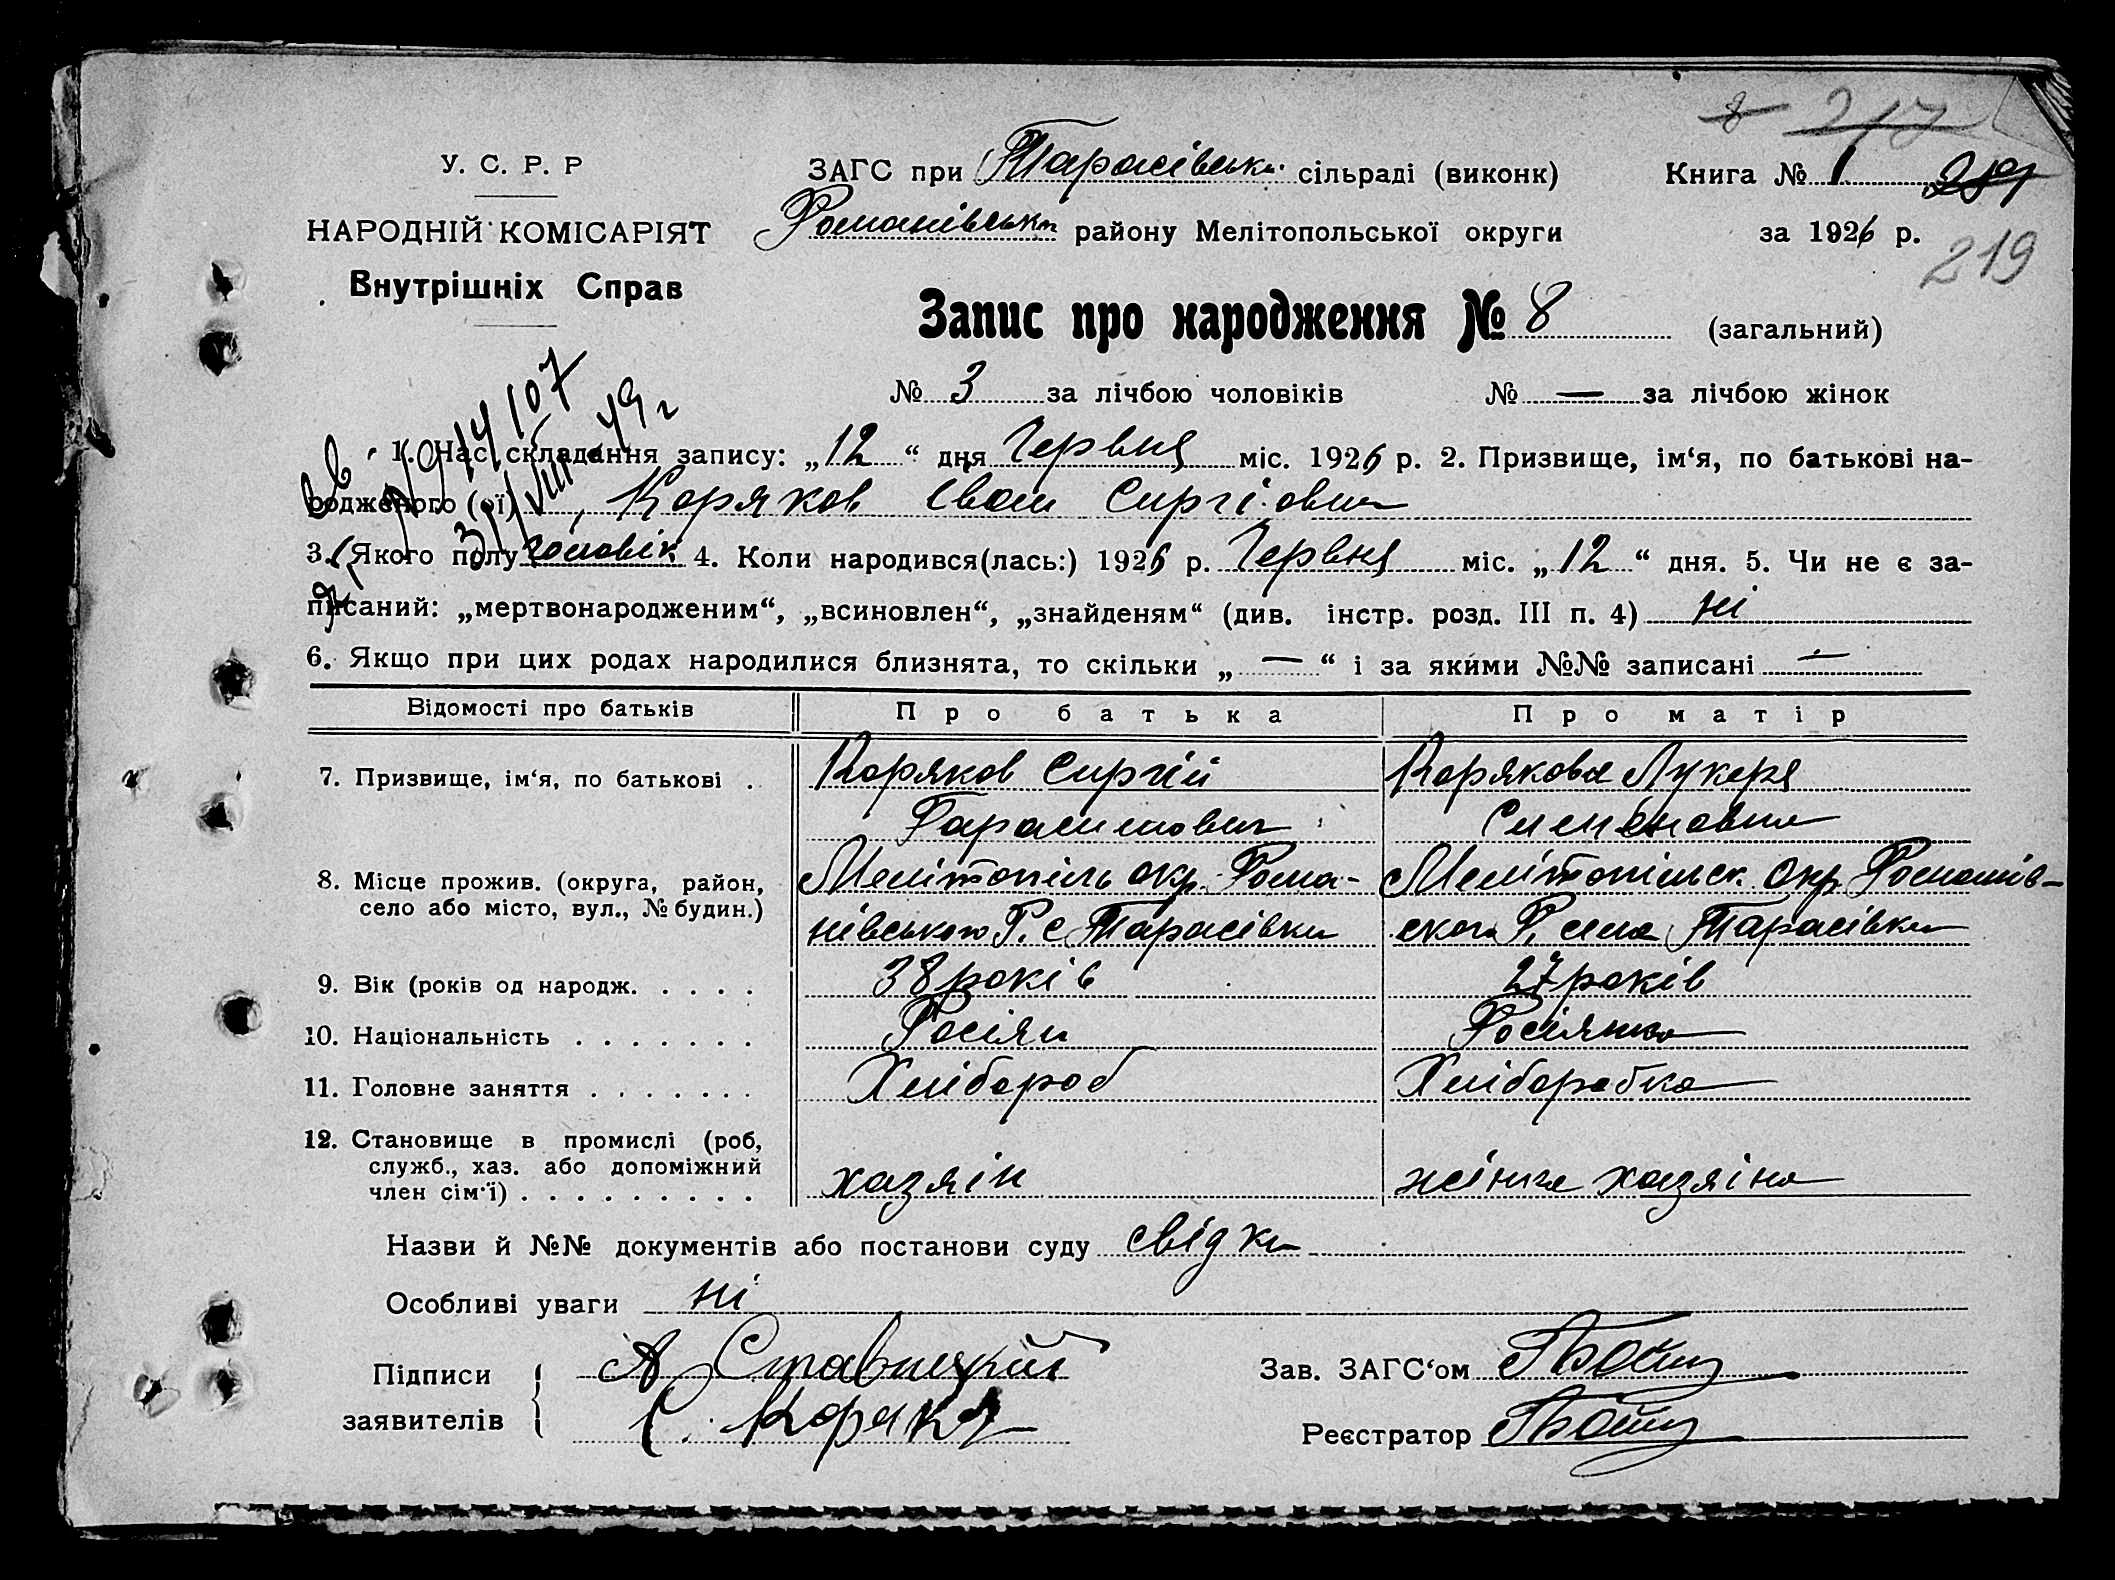 8 217
У. С. Р. Р
ЗАГС при Тарасівській сільраді (виконк)
Книга № 1
НАРОДНІЙ КОМІСАРІЯТ
Романівськ району Мелітопольської округи
за 1926 р.
219
Внутрішніх Справ
Запис про народження № 8 (загальний)
№ 3 за лічбою чоловіків № — за лічбою жінок
1. Час складання запису: „12“ дня Червня міс. 1926 р. 2. Призвище, ім‘я, по батькові на-
родженого (ої) Коряков Іван Сиргіович
3. Якого полу чоловік 4. Коли народився(лась:) 1926 р. Червня міс. „12“ дня. 5. Чи не є за-
писаний: „мертвонародженим“, „всиновлен“, „знайденям“ (див. інстр. розд. III п. 4) ні
6. Якщо при цих родах народилися близнята, то скільки „—“ і за якими №№ записані —
Відомості про батьків Про батька Про матір
7. Призвище, ім‘я, по батькові . Коряков Сиргій Корякова Лукеря
Гарасимович Сименовна
8. Місце прожив. (округа, район, Мелітопіль окр. Рома- Мелітопільск. Окр. Романів-
село або місто, вул., № будин.) нівського Р. с Тарасівки ского Р. села Тарасівки
9. Вік (років од народж. . . . . 38 років 27 років
10. Національність . . . . . . . Росіян Росіянка
11. Головне заняття . . . . . . . Хлібороб Хлібаробка
12. Становище в промислі (роб,
служб., хаз. або допоміжний хазяін жінка хазяіна
член сім‘ї) . . . . . . . . .
Назви й №№ документів або постанови суду свідки
Особливі уваги ні
Підписи А Ставицкий Зав. ЗАГС‘ом
заявителів С. Коряк Реєстратор